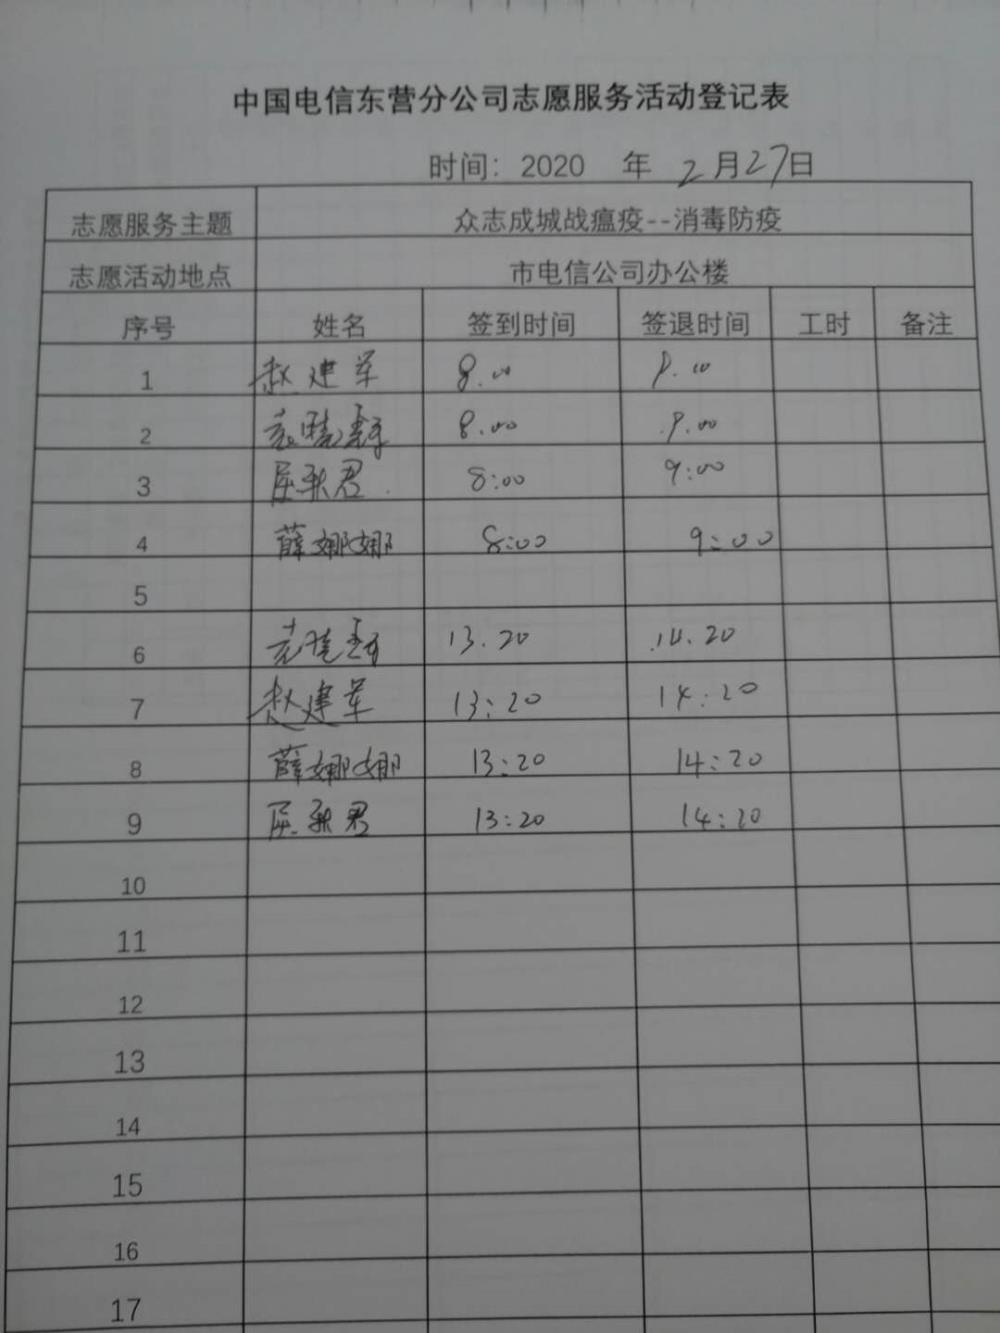 中国电信东营分公司志愿服务活动登记表
时间：2020 年 2月27日
志愿服务主题 众志成城战瘟疫--消毒防疫
志愿活动地点 市电信公司办公楼
序号 姓名 签到时间 签退时间 工时 备注
1 赵建军 8.00 9.00
2 8.00 9.00
3 8:00 9:00
4 薛娜娜 8:00 9:00
5
6 13.20 14.20
7 赵建军 13:20 14:20
8 薛娜娜 13:20 14:20
9 13:20 14:20
10
11
12
13
14
15
16
17